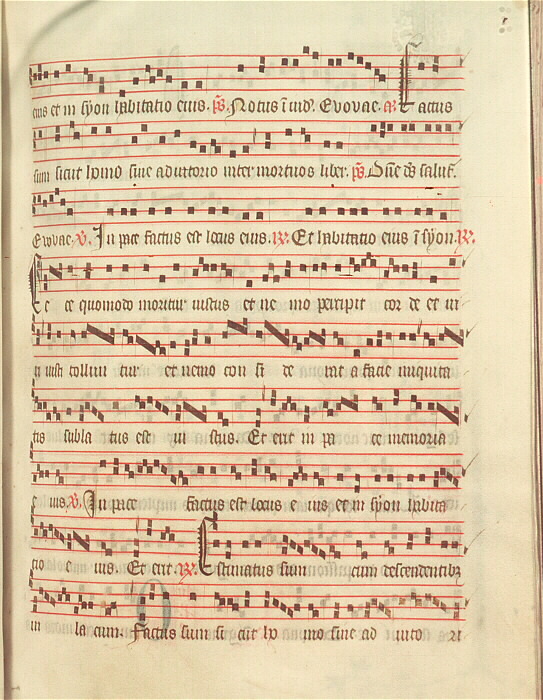 eius et in syon habitatio eius. ps. Notus ī iud'. Evovae. a. Factus
sum sicut homo sine adiutorio inter mortuos liber. ps. Dñe ds salut'.
Evovae. V. In pace factus est locus eius. R. Et habitatio eius ī syon. R.
Ecce quomodo moritur iustus et nemo percipit corde et vi
ri iusti tollun tur et nemo con si de rat a facie iniquita
tis subla tus est iu stus. Et erit in pa ce memoria
e ius. V. In pace factus est locus e ius et in syon habita
tio e ius. Et erit. R. Estimatus sum cum descendentib9
in la cum. Factus sum si cut ho mo sine ad iuto ri